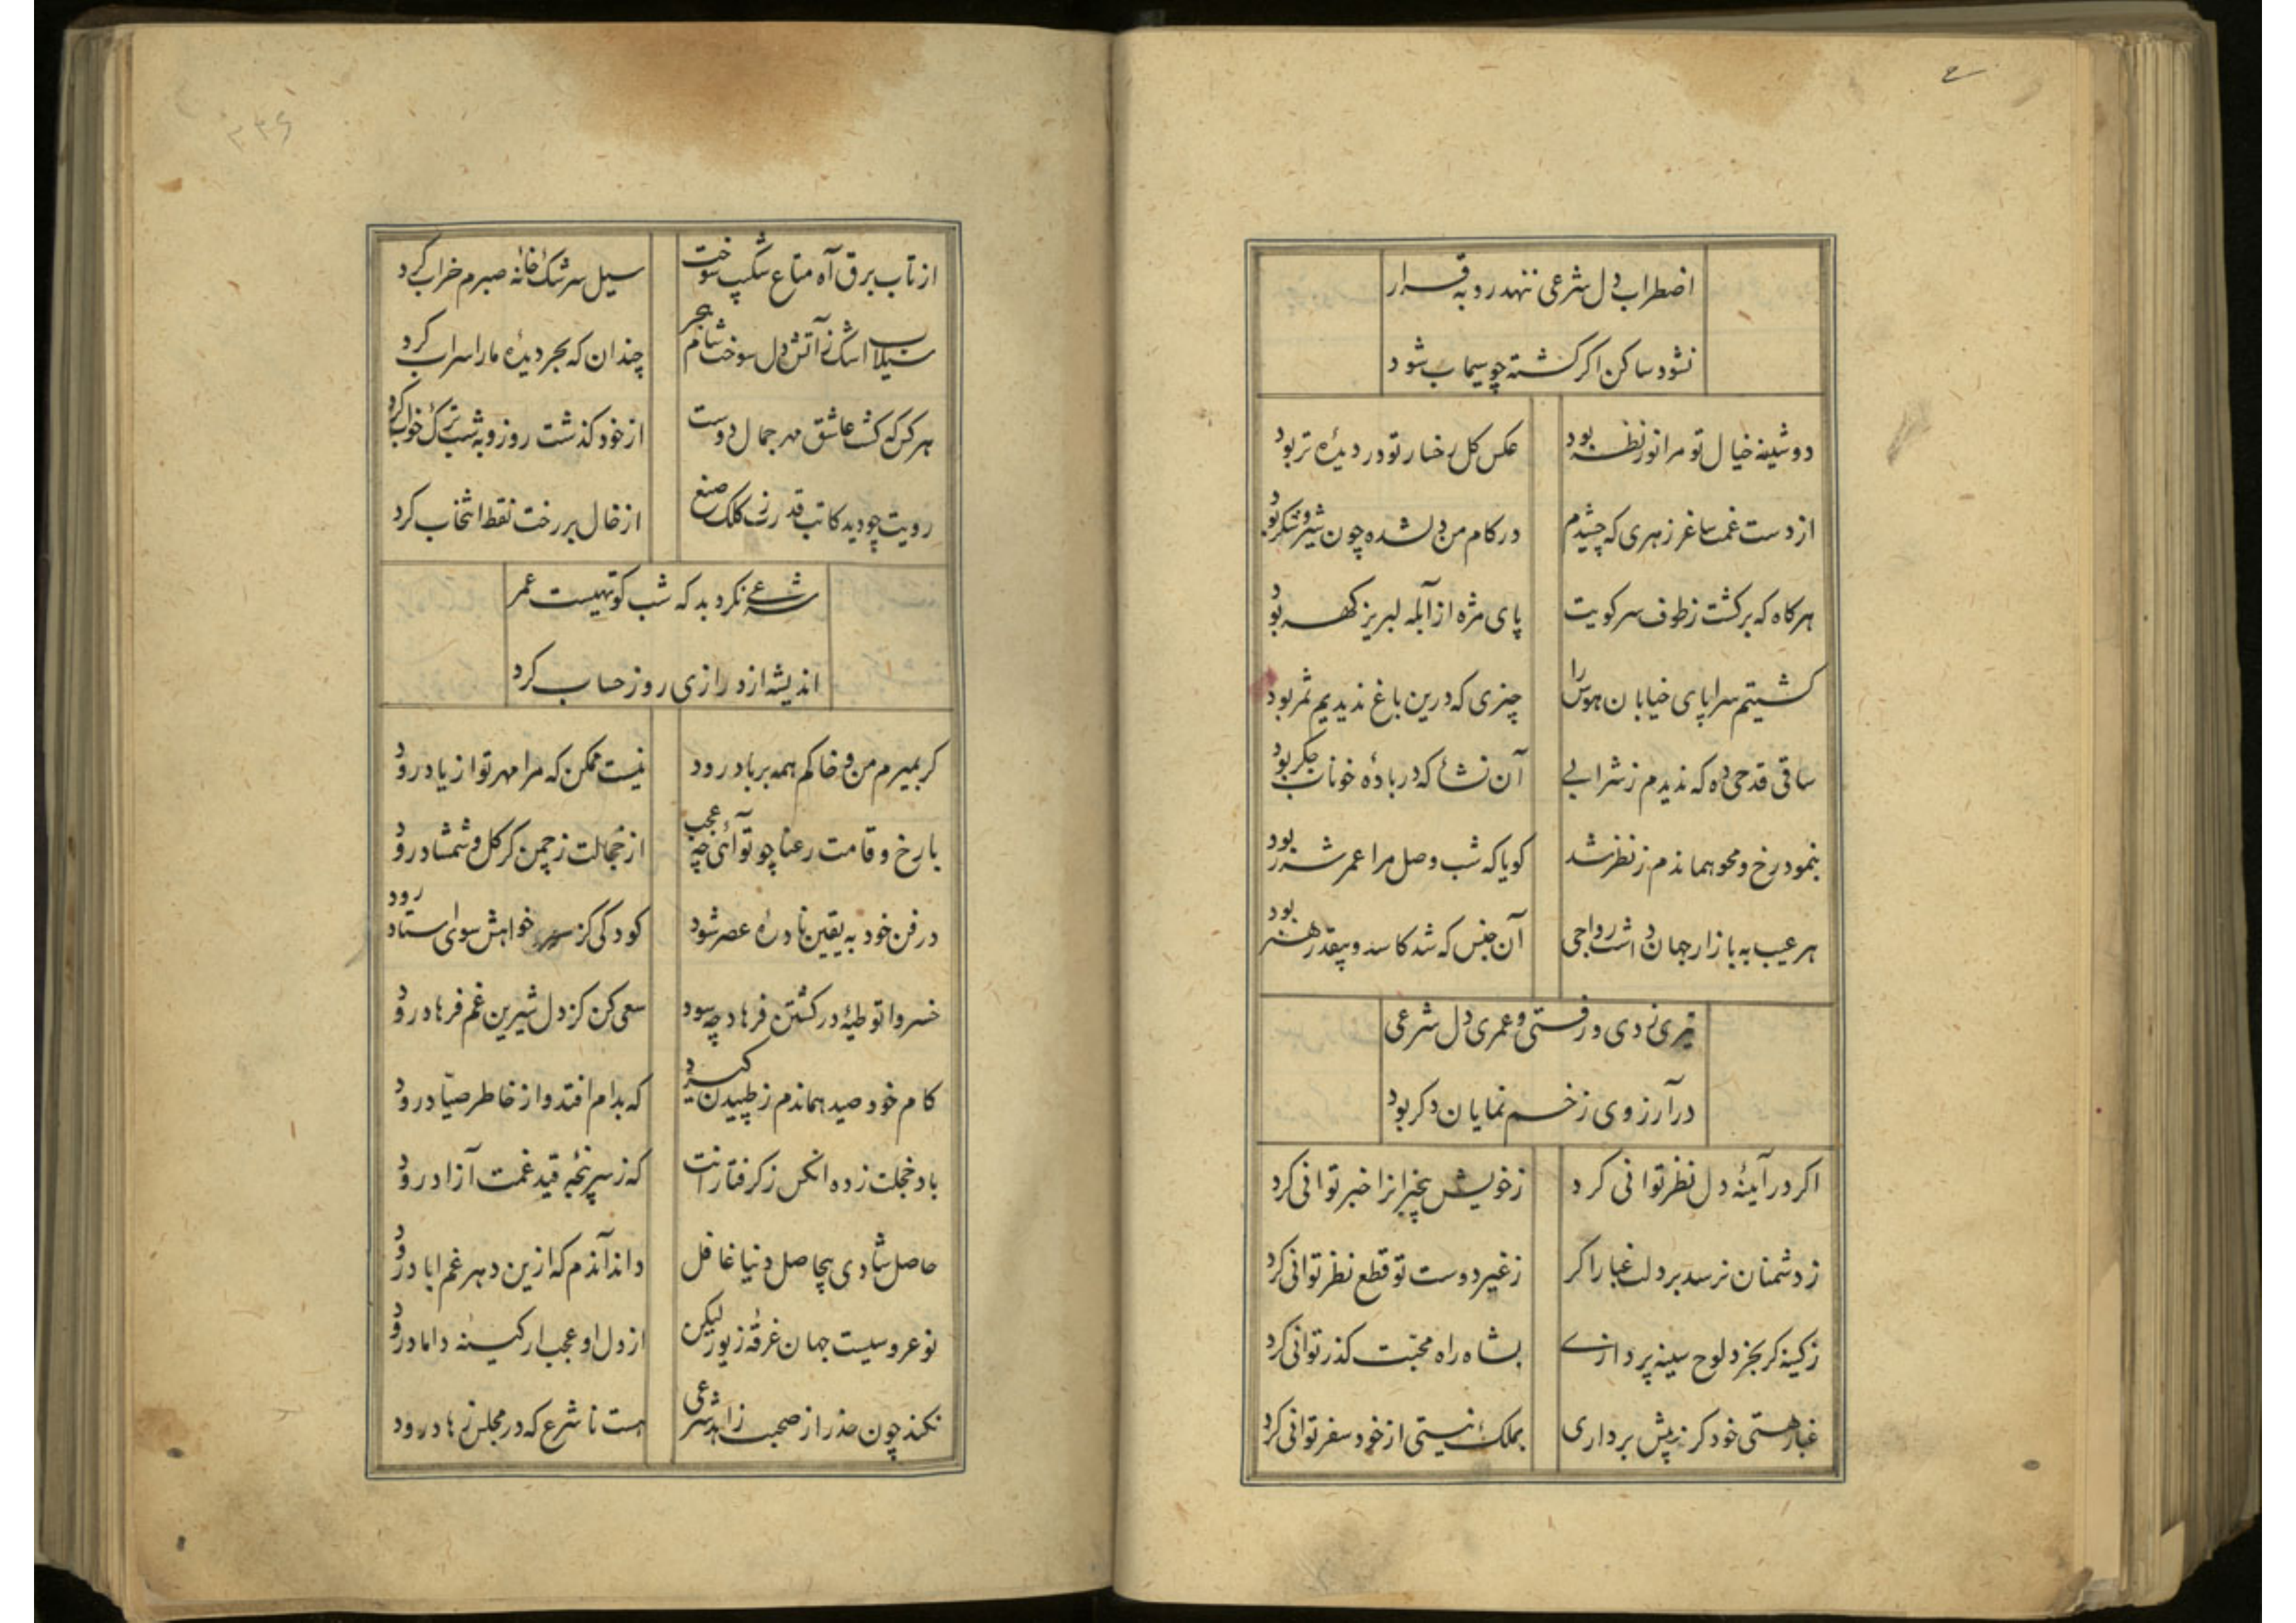 اضطراب دل شرعی ننهد رو به قرار
نشود ساکن اگر کشته چو سیماب شود
دوشینه خیال تو مرا نور نظر بود
عکس کل رخسار تو در دیدهٔ تر بود
از دست غمت ساغر زهری که چشیدم
در کام من دلشده چون شیر و شکر بود
هر کاه که برکشت ز طوف سر کویت
پای مژه از آبله لبریز کهر بود
کشتیم سراپای خیابان هوس را
چیزی که درین باغ ندیدیم ثمر بود
ساقی قدحی ده که ندیدم ز شرابی
آن نشأ که در بادهٔ خوناب جکر بود
بنمود رخ و محو هماندم ز نظر شد
کویا که شب وصل مرا عمر شرر بود
هر عیب به بازار جهان داشت رواجی
آن جنس که شد کاسد و بیقدر هنر بود
تیری زدی و رفتی و عمری دل شرعی
در آرزوی زخم نمایان دکر بود
اکر در آینهٔ دل نظر توانی کرد
ز خویش بیخبرانرا خبر توانی کرد
ز دشمنان نرسد بر دلت غبار اکر
ز غیر دوست تو قطع نظر توانی کرد
ز کینه کر بخرد لوح سینه پردازی
بشاه راه محبت کذر توانی کرد
غبار هستی خود کر ز پیش برداری
بملک نیستی از خود سفر توانی کرد
۳۳۶
از تاب برق آه متاع شکیب سوخت
سیل سرشک خانهٔ صبرم خراب کرد
سیلاب اشک ز آتش دل سوخت شام هجر
چندان که بحر دیدهٔ ما را سراب کرد
هر کس که کشت عاشق مهر جمال دوست
از خود کذشت روز و به شب ترک خواب کرد
رویت چو دید کاتب قدرت ز کلک صنع
از خال بر رخت نقط انتخاب کرد
شرعی نکرد بد که شب کوتهیست عمر
اندیشه از درازی روز حساب کرد
کر بمیرم من و خاکم همه بر باد رود
نیست ممکن که مرا مهر تو از یاد رود
با رخ و قامت رعنا چو تو آئی چه عجب
از خجالت ز چمن کر کل و شمشاد رود
در فن خود به یقین نادرهٔ عصر شود
کودکی کز سر خواهش سوی استاد رود
خسروا توطیه در کشتن فرهاد چه سود
سعی کن کز دل شیرین غم فرهاد رود
کام خود صید هماندم ز طپیدن کیرد
که بدام افتد و از خاطر صیاد رود
باد خجلت زده انکس ز کرفتارانت
که ز سرپنجهٔ قید غمت آزاد رود
حاصل شادی بیحاصل دنیا غافل
داند آندم که ازین دهر غم اباد رود
نوعروسیست جهان غرقهٔ زیور لیکن
از دل او عجب ار کینه داماد رود
نکند چون حذر از صحبت زاهد شرعی
هست نا شرع که در مجلس زهاد رود